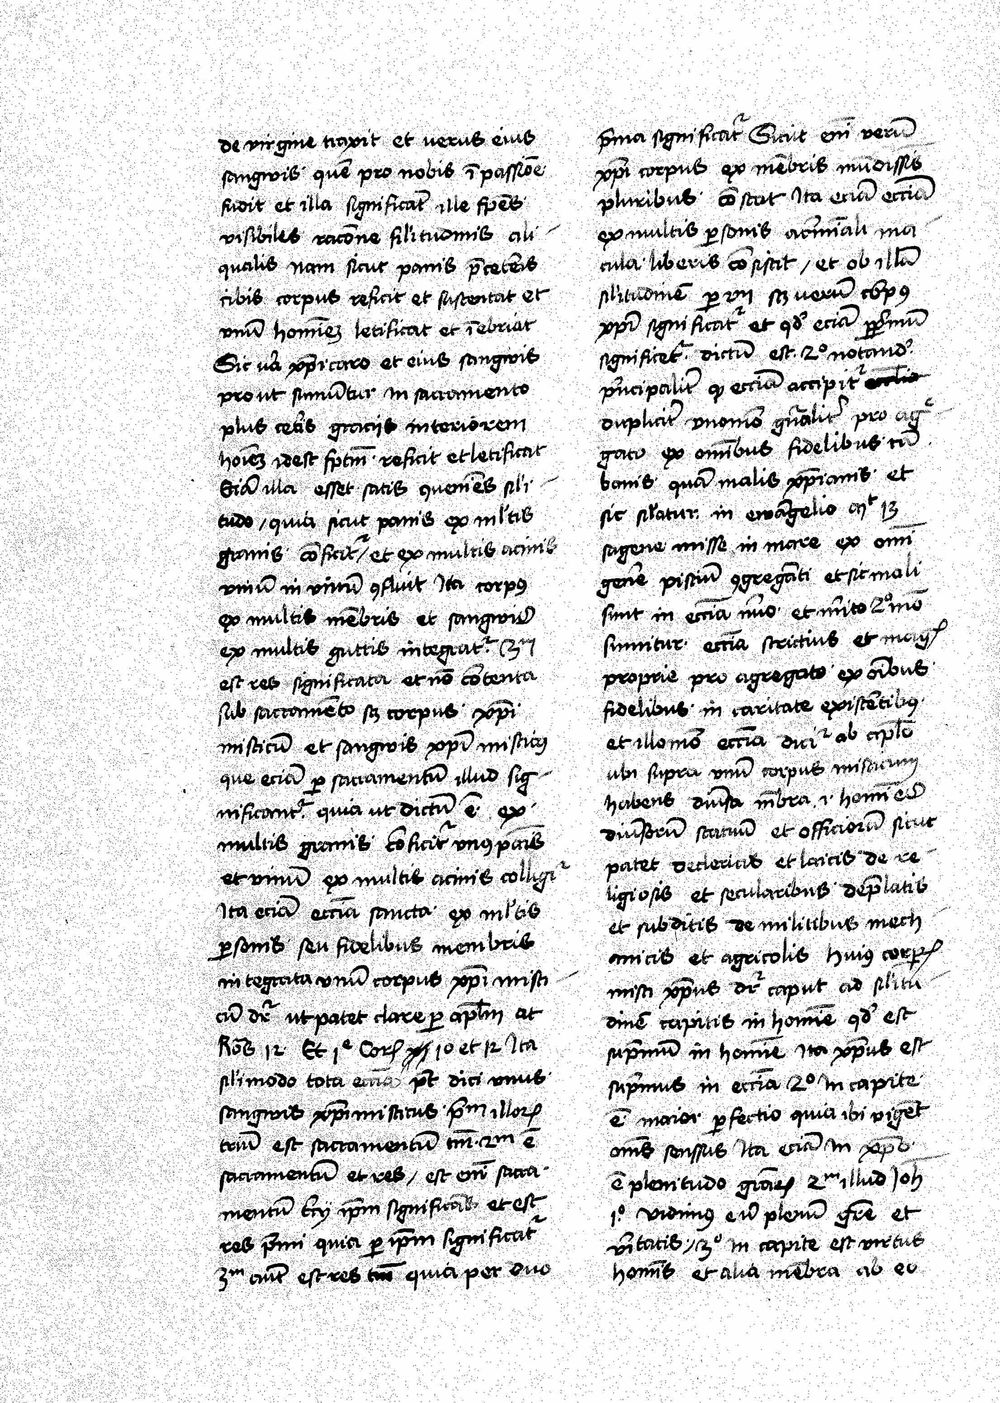 de virgine traxit et verus eius
sangwis quē pro nobis ī passiōe
fudit et illa significat̄ ille sp̄ēs
visibiles racōne silitudinis ali
qualis nam sicut panis p̄ ceteris
cibis corpus reficit et sustentat et
vinū homīez letificat et īebriat
Sic va xp̄i caro et eius sangwis
prout sumūtur in sacramento
plus cet̄is graciis interiorem
hoīez idest sp̄tm̄ reficit et letificat
Eciā illa esset satis queniēs sili
tudo / quia sicut panis ex ml̄tis
granis cōficit᷑ / et ex multis acinis
vinū in vinū ꝯfluit Ita corpꝰ
ex multis mēbris et sangwis
ex multis guttis integrat᷑ 3m
est res significata et nō cōtenta
sub sacramēto sꝫ corpus xp̄i
misticū et sangwis xp̄i misticꝰ
que eciā ꝑ sacramentū illud sig
nificant᷑ quia ut dictū ē ex
multis granis cōficit᷑ vnꝰ panis
et vinū ex multis acinis colligi᷑
Ita eciā eccīa sancta ex ml̄tis
ꝑsonis seu fidelibus membris
integrata vnū corpus xp̄i misti
cū dr̄ ut patet clare ꝑ apl̄m at
Ro̅s 12 Et 1ᵉ Corꝝ 10 et 12 Ita
sili modo tota eccīa pt̄ dici vnus
sangwis xp̄i misticus p̄m illoꝝ
triū est sacramentū tm̄ 2m ē
sacramentū et res / est em̄ sacra
mentū ip̄m significās et est
res p̄mi quia ꝑ ip̄m significat᷑
3m aut̄ est res tm̄ quia per duo
p̄ma significat᷑ Sicut em̄ verū
xp̄i corpus ex mēbris mūdissīs
pluribus cōstat Ita eciā eccīā
ex multis ꝑsonis acīmīali ma
cula liberis cōsistit / et ob illā
silitudinē sꝫ verū corpꝰ
xp̄i significat᷑ et qd̄ eciā ꝑ p̄mū
significet᷑ dictū est 2º notand
p̄ncipalit̄ ꝙ eccīā accipit᷑
duplicit̄ vnomō gn̄alit̄ pro ag᷑
gato ex om̄ibus fidelibus tā
bonis quā malis xp̄ianis et
sic sil̄atur in ewāgelio mt 13
sagene misse in mare ex om̄i
gen̄e pisciū ꝯgregāti et sic mali
sunt in eccīa n̄uo et m̄ito 2º mō
sumitur eccīa strictius et magꝭ
proprie pro agregato ex oībus
fidelibus in caritate existētibꝰ
et illo mō eccīā dici᷑ ab apl̄o
ubi supra vnū corpus misticum
habens diūsa mēbra .i. homīes
diūsorū statuū et officiorū sicut
patet de clericis et laicis de re
ligiosis et secularibus de p̄latis
et subditis de militibus mech
anicis et agricolis huiꝰ corpꝭ
misti xp̄us dr̄ caput ad silitu
dinē capitis in homīe qd̄ est
sup̄mū in homīe Ita xp̄us est
sup̄mus in eccīa 2º In capite
ē maior ꝑfectio quia ibi vigēt
om̄s senssus Ita eciā in xp̄o
ē plenitudo graꝝ 2m illud Joh̄
1º vidimꝰ eū plenū gr̄e et
v̄itatis / 3º in capite est virtus
homīs et alia mēbra ab eo